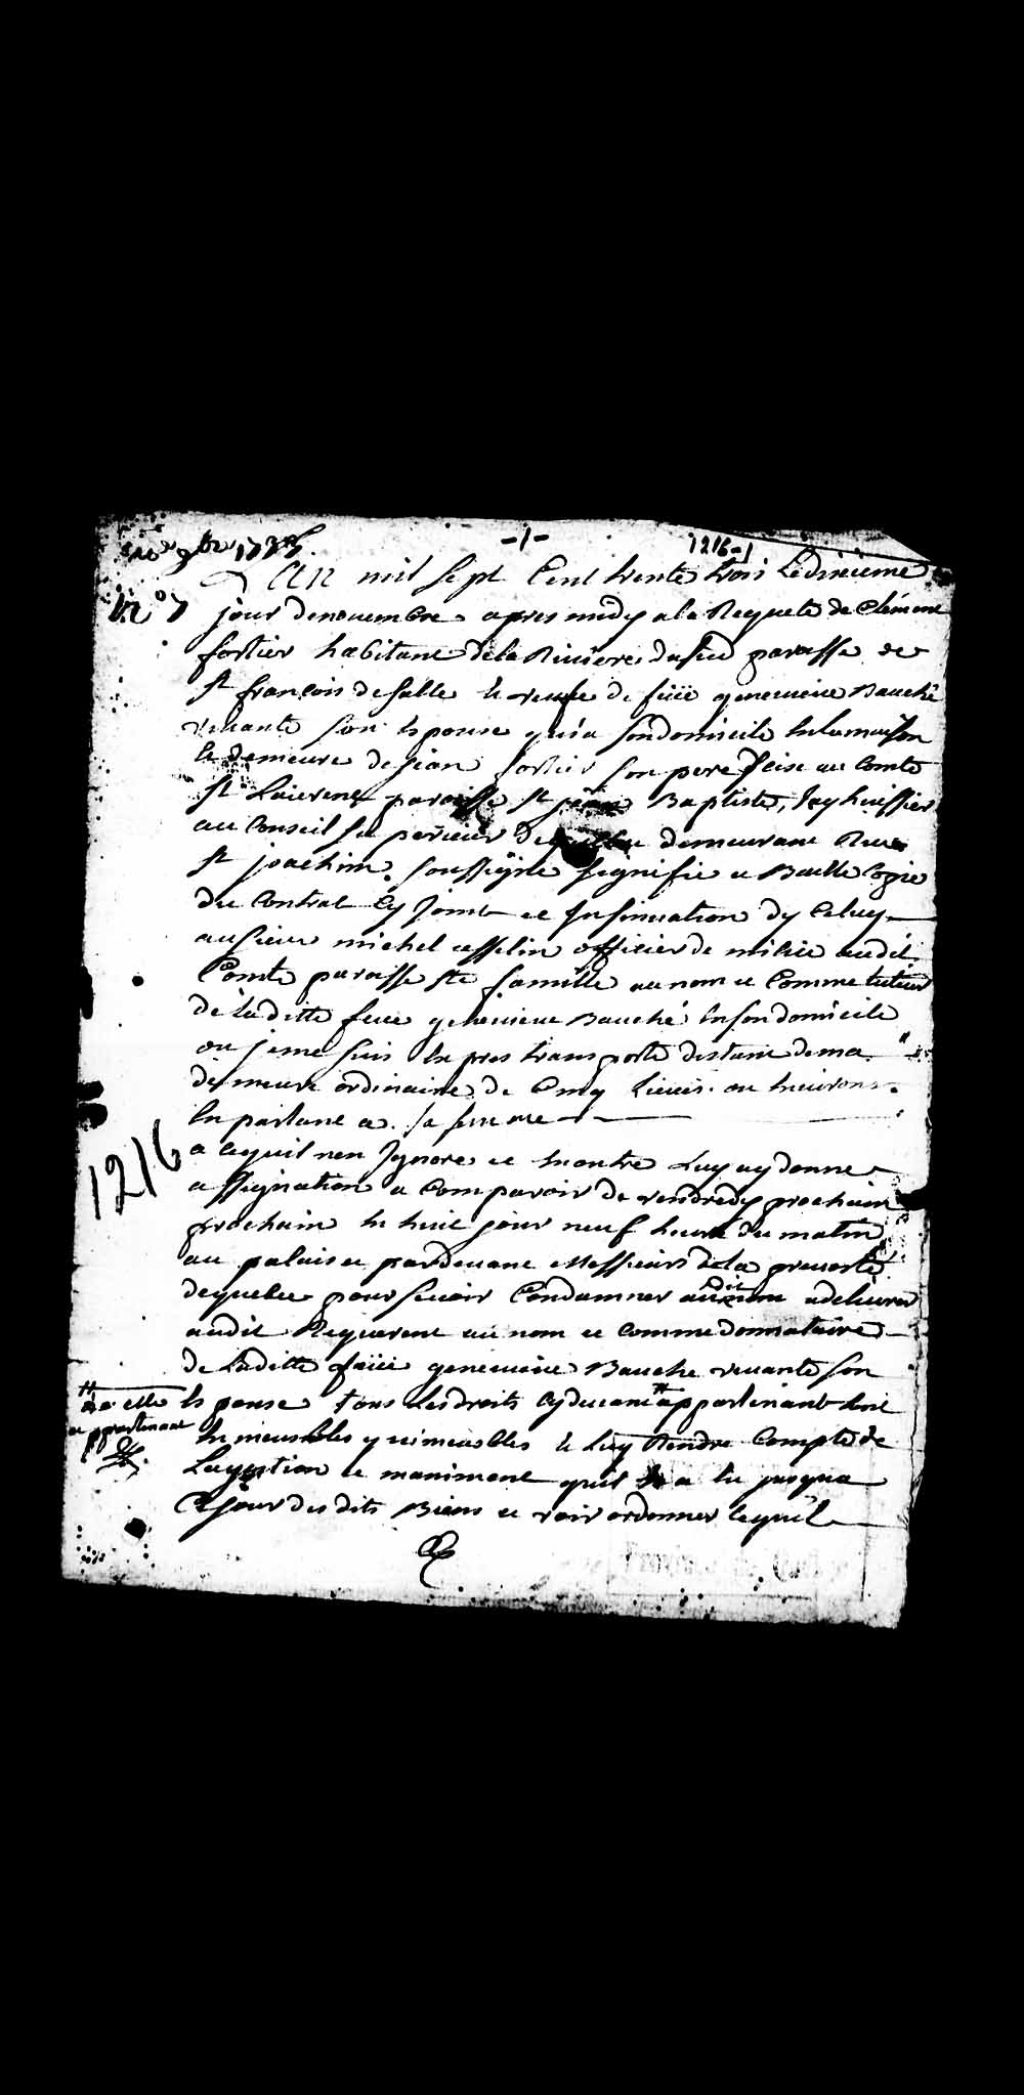 10e 9bre 1733.
-1-
1216-1
N° 7
L'An mil sept Cent trente trois Le dixieme
jour de nouembre apres midy a la Requete de Clément
fortier habitant de la Riuiere du sud paroisse de
st françois de salle et veufe de füe geneuieue Bauché
viuante son Espouse qui a son domicile En la maison
et demeure de jean fortier son pere size au Comté
st Laurent paroisse st jean Baptiste, Jay huissier
au Conseil superieur de demeurant Rue
st joachim soussigné signifié et Baillé Copie
du Contrat Cy Joint et Insinuation dy Celuy
au sieur michel asselin officier de milice audit
Comté paroisse ste famille au nom et Comme tuteur
de laditte feue geneuieue Bauché En son domicile
ou je me suis Expres transporté distant de ma
demeure ordinaire de Cinq Lieues ou Enuirons
En parlant a sa femme
a Cequil nen Ignore et En outre Luy ay donné
assignation a Comparoir de vendredy prochain
prochain En huit jour neuf heure du matin
au palais et pardeuant Messieurs de la preuosté
de quebec pour se voir Condamner audit nom a deliurer
audit Requerant au nom et comme donnataire
de laditte füe geneuieue Bauche viuante son
Espouse tous les droits Cy deuant # appartenant soit
# a elle
appartenant
En meubles qu immeubles et luy Rendre Compte de
La gestion et maniment quil En a Eu jusqua
Ce jour des dits Biens et voir ordonner lequel
1216